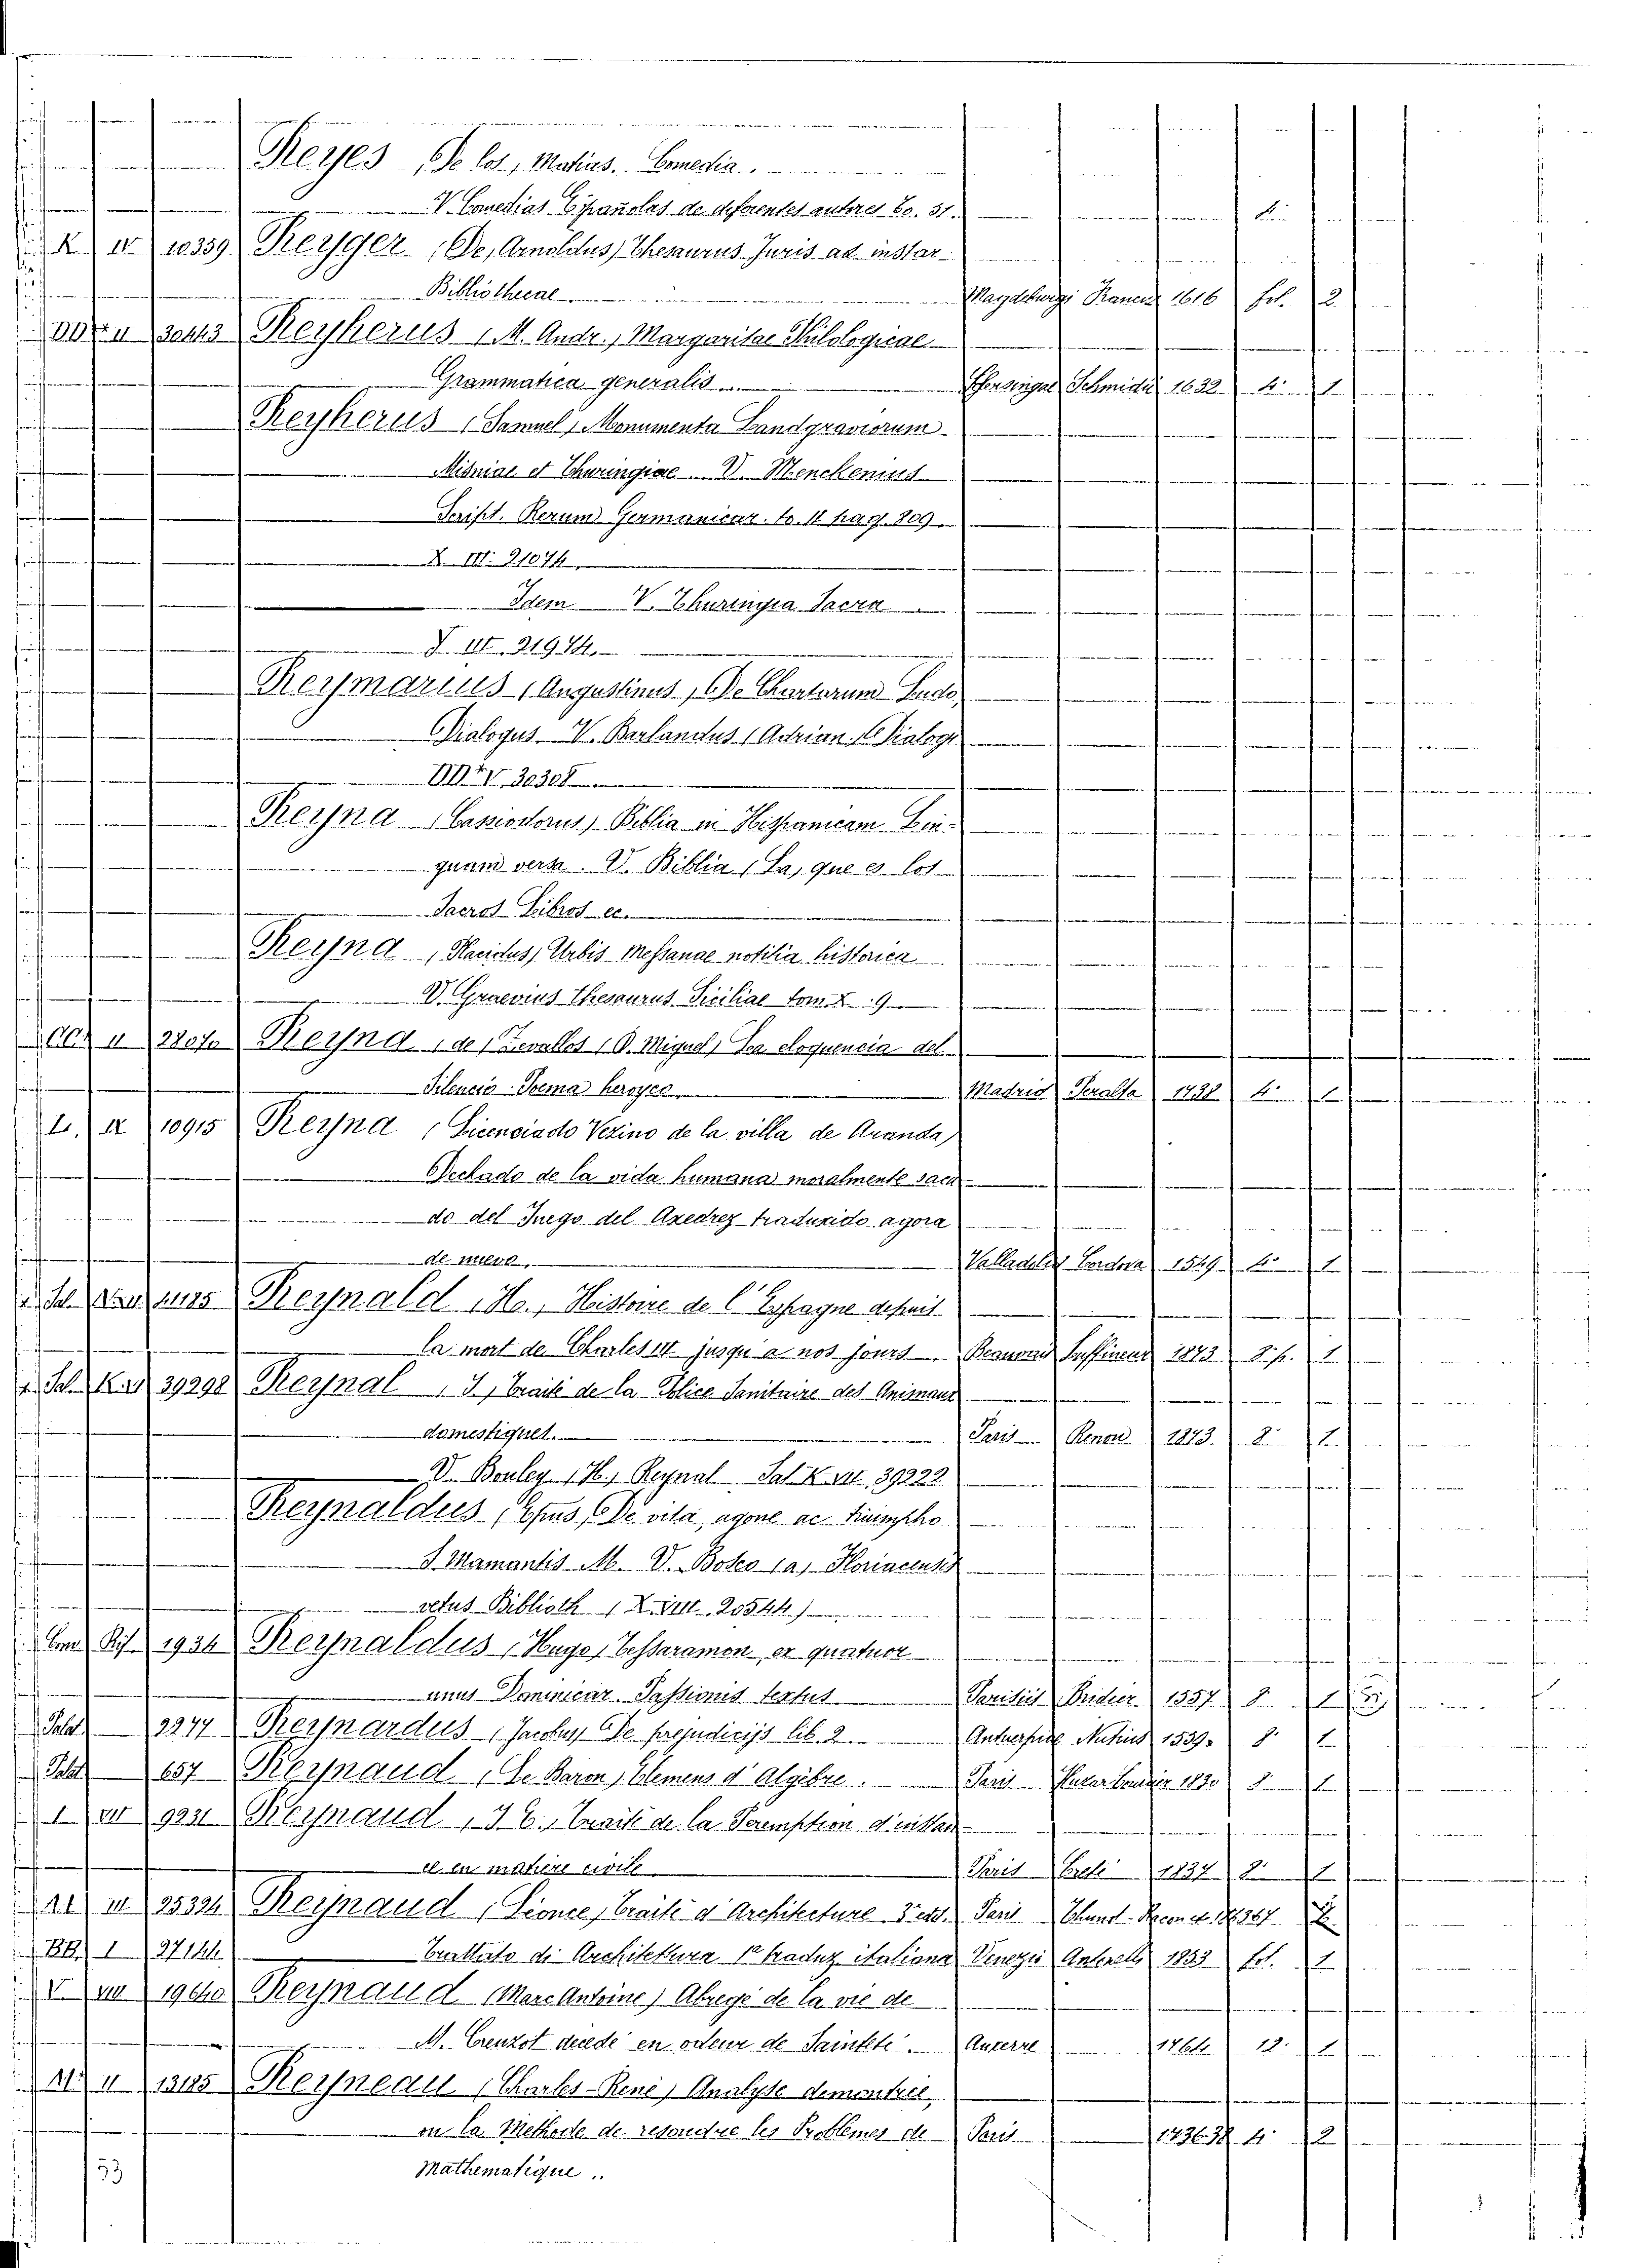 Reyes (De los, Matias. Comedia
V. Comedias Españolas de deferentes autores to. 31.
K IV 10359 Reyger (De, Arnoldus) Thesaurus Juris ad instar
Bibliothecae Magdeburgi 1616 fol. 2
30443 Reyherus (M. Andr.) Margaritae Philologicae
Grammatica generalis Schmidii 1632 4. 1
Reyherus (Samuel) Monumenta Landgraviorum
Misniae et Thuringiae V. Menckenius
Script. Rerum Germanicar. to. II pag. 809.
X. III. 21074
Idem V. Thuringia Sacra
V. III. 21974.
Reymarius (Augustinus) De Chartarum Ludo,
Dialogus. V. Barlandus (Adrian.) Dialogi
30308
Reyna (Cassiodorus) Biblia in Hispanicam Lin-
guam versa. V. Biblia (La, que es los
Sacros Libros ec.
Reyna (Placidus) Urbis Messanae notitia historica
V. Graevius Thesaurus Siciliae tom. X. 9
CC. II 28070 Reyna (de) Zevallos (D. Miguel) La eloquencia del
Silencio Poema heroyco Madrid Peralta 1738 4. 1
L. IX 10915 Reyna (Licenciado Vezino de la villa de Aranda)
Dechado de la vida humana moralmente saca
do del Juego del Axedrez traduzido agora
de nuevo, Valladolid Cordova 1549 4. 1
Reynald (H.) Histoire de l'Espagne depuis
la mort de Charles III jusqu'a nos jours 1873 8. p. 1
39298 Reynal (J.) Traité de la Police Sanitaire des Animaux
domestiques. Paris Renou 1873. 8. 1
V. Bouley (H.) Reynal Sal K. VII. 39222
Reynaldus (Epus) De vita, agone ac triumpho
S. Mamantis M. V. Bosco (a) Floriacensis
vetus Biblioth (X. VIII. 20544)
1934 Reynaldus (Hugo) Tessaramon, ex quatuor
unus Dominicar. Passionis textus Parisiis 1557 8. 1
Palat 2277 Reynardus (Jacobus) De prejudicijs lib. 2 Antuerpiae Nutius 1539. 8. 1
Palat 657 Reynaud (Le Baron) Elemens d'Algèbre. Paris 1830 8. 1
I VII 9231 Reynaud (J. E.) Traité de la Peremption d'instan
ce en matiere civile Paris 1837 8. 1
25324 Reynaud (Léonce) Traité d'Architecture 3e ed. Paris
BB. I 27144 Trattato di Architettura 1a traduz italiana Venezia Antonelli 1853 fol. 1
V VIII 19640 Reynaud (Marc Antoine) Abregé de la vie de
M. Creuzot décédé en odeur de Sainteté. Auxerre 1764 12. 1
II 13185 Reyneau (Charles-René) Analyse demontrée,
ou la Methode de resoudre les Problemes de Paris 1736.38 4. 2
53 Mathematique..